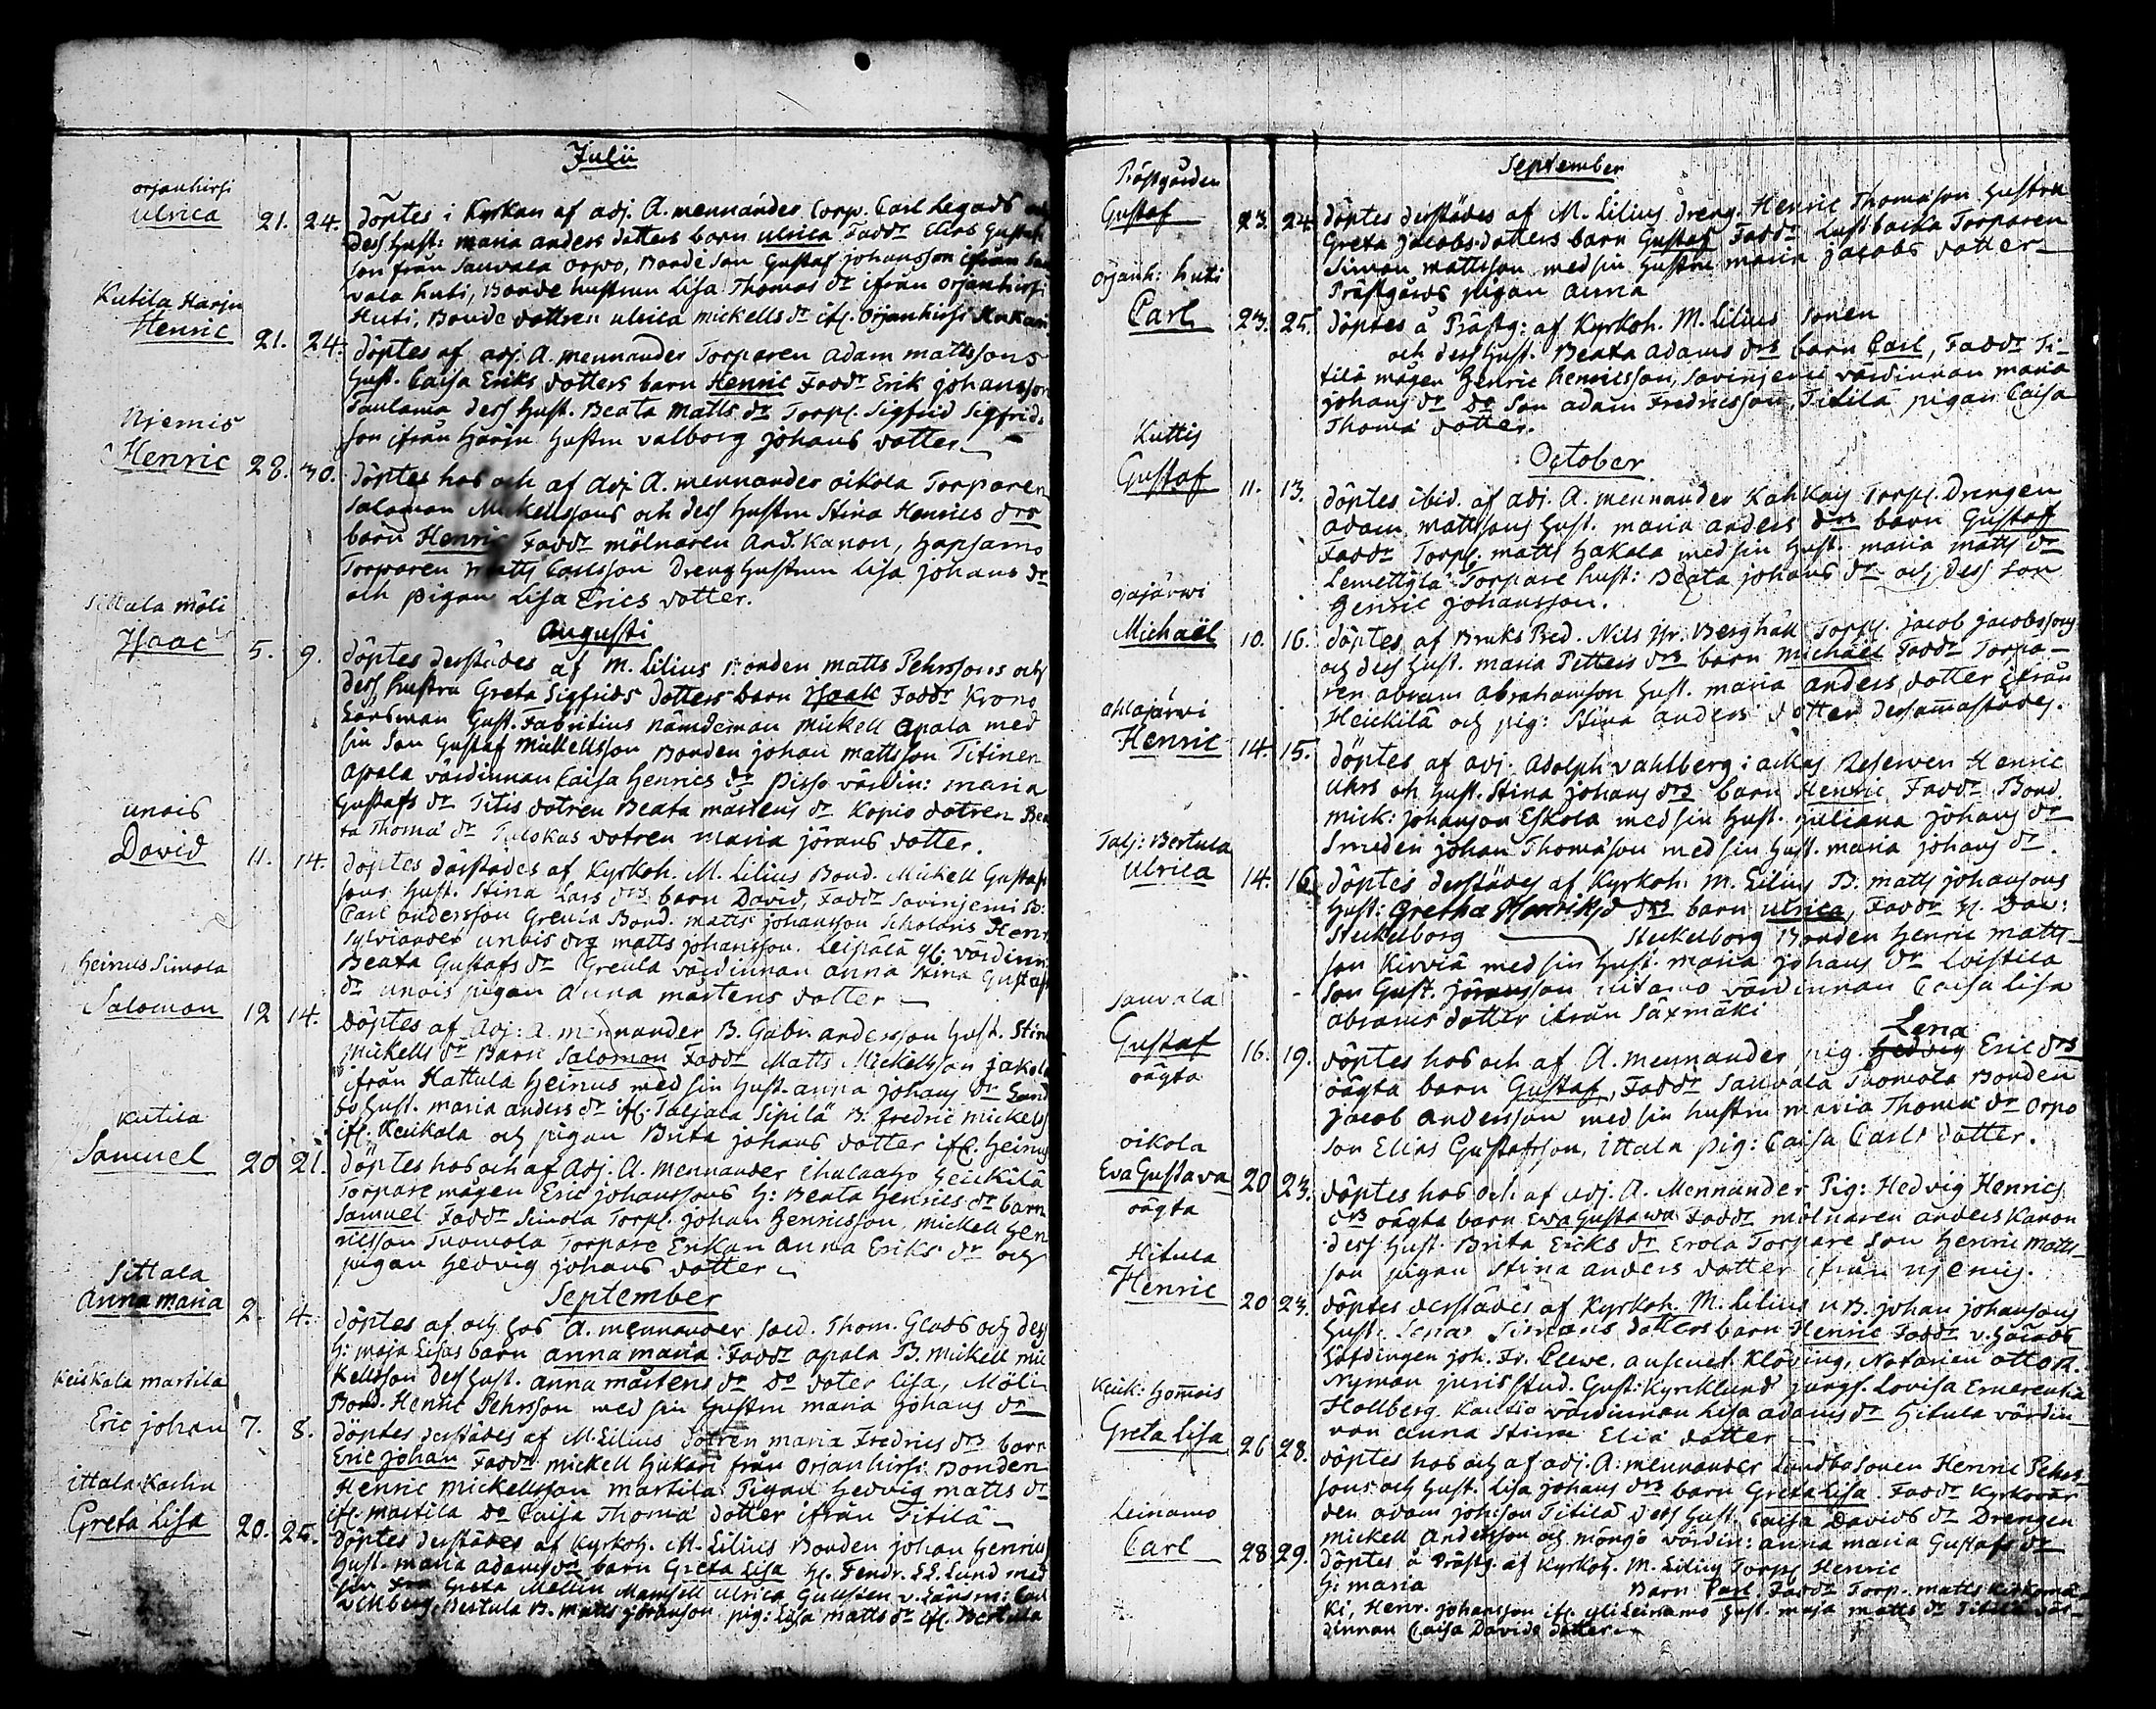 Julii
orjanhirsi
Ulrica 21. 24. döptes i Kyrkan af adj. A. mennander Corp. Carl Legads
dess hust: maria anders dotters barn Ulrica Faddr Elias Gustafs
son från Sauvala orpo, Bonde son Gustaf johansson ifrån
vala huti, Bonde hustrun Lisa Thomas dr ifrån orjanhirsi
Huti, Bonde dottren ulrica mickells dr ifr. orjanhirsi
Kutila Harju
Henric 21. 24. döptes af adj. A. mennander Torparen adam mattssons
hust. Caisa Eriks dotters barn Henric Faddr Erik johansson
Taulama dess hust. Beata matts dr Torp. Sigfrid Sigfrids
son ifrån Harju hustru valborg johans dotter
Njemis
Henric 28. 30. döptes hos och af adj A. mennander oikola Torparen
Salomon Mickellssons och dess hustru Stina Henrics drs
barn Henric Faddr mölnaren And. Kanon, Hapsamo
Torparen matts Carlsson Dreng hustrun Lisa johans dr
och pigan Lisa Erics dotter.
Augusti
Sittala möli
Isaac 5. 9. döptes derstädes af M. Lilius Bonden matts Pehrssons och
dess hustru Greta Sigfrids dotters barn Isaak Faddr Krono
Länsman Gust. Fabritius nämdeman mickell apala med
sin son Gustaf mickellsson Bonden johan mattsson Titinen
apala värdinnan Caisa Henrics dr Pisso värdin: maria
Gustafs dr Titis dotren Beata mårtens dr Kopio dotren Bea
ta Thomæ dr Tulokas dotren maria jörans dotter.
unois
David 11. 14. döptes därstädes af Kyrkoh. M. Lilius Bond. Mickell Gustafs
sons hust. Stina Lars drs barn David, Faddr Savinjemi B:
Carl andersson Greula Bond. matts johansson Scholaris Henr
Sylviander unois drg matts johansson. Leipälä gl. värdinn
Beata Gustafs dr Greula värdinnan anna Stina Gustafs
dr unois pigan anna mårtens dotter
Heinus Simola
Salomon 12 14. döptes af Adj: A. mennander B. Gabr. andersson hust. Stina
Mickells dr Barn Salomon Faddr Matts Mickellsson Jakola
ifrån Hattula Heinus med sin hust. anna johans dr Land
bo hust. maria anders dr ifr. Taljala Sipilä B. Fredric mickels
ifr. Keikala och pigan Brita johans dotter ifr. Heinus
Kutila
Samuel 20 21. döptes hos och af Adj. A. Mennander Ihalaaho Heickilä
Torpare mågen Eric johanssons h: Beata Henrics dr barn
Samuel Faddr Simola Torp. johan Henricsson, mickell Hen
ricsson Tuomola Torpare Enkan Anna Eriks dr och
pigan Hedvig johans dotter
September
Sittala
Anna maria 2. 4. döptes af och hos A. mennander sold. Thom. Glads och dess
h: maja Lisas barn anna maria. Faddr apala B. mickell mic
kellsson dess hust. anna mårtens dr do doter Lisa, Möli
Bond. Henric Pehrsson med sin hustru maria johans dr
Keikala martila
Eric johan 7. 8. döptes derstädes af M. Lilius dotren maria Fredrics drs barn
Eric johan Faddr mickell Hukari från orjanhirsi Bonden
Henric mickellsson martila Pigan Hedvig matts dr
ifr. martila do Caisa Thomæ dotter ifrån Titilä
ittala Karlin
Greta Lisa 20. 25. döptes derstädes af Kyrkoh. M. Lilius Bonden johan Henrics
hust. maria adams dr barn Greta Lisa H. Fendr. Lund med
sin Fru Greta Mellin Mamsell ulrica Gulsten v. Länsm: Carl
Bertula B. matts johanson pig: Lisa matts dr ifr. Bertula
September
Prästgården
Gustaf 23. 24 döptes derstädes af M. Lilius Dreng. Henric Thomæson hustru
Greta jacobs dotters barn Gustaf Faddr Lustbacka Torparen
Simon mattsson med sin hustru maria jacobs dotter
Prästgårds pigan anna
orjanh: huti
Carl 23. 25. döptes å Prästg: af Kyrkoh. M. Lilius sonen
och dess hust. Beata adams drs barn Carl, Faddr Ti-
tilä mågen Henric Henricsson, Savinjemi värdinnan maria
johans dr do son adam Fredricsson, Titila pigan Caisa
Thomæ dotter.
October
Kuttis
Gustaf 11. 13. döptes ibid. af adj. A. mennander Torp. Drengen
adam mattsons hust. maria anders drs barn Gustaf
Faddr Torp. matts Hakala med sin hust. maria matts dr
Lemettylä Torpare hust: Beata johans dr och dess son
Henric johansson.
ojajärwi
Michaël 10. 16. döptes af Bruks Pred. Nils Berghäll Torp. jacob jacobssons
och dess hust. maria Petters drs barn Michaël Faddr Torpa-
ren abram abrahamson hust. maria anders dotter ifrån
Heickilä och pig: Stina anders dotter dersammastädes.
ahlajärwi
Henric 14. 15. döptes af adj. Adolph vahlberg: Reserven Henric
Uhrs och hust. Stina johans drs barn Henric Faddr Bond.
mick: johanson Eskola med sin hust. juliana johans dr
Smeden johan Thomæson med sin hust. maria johans dr.
Talj: Bertula
Ulrica 14. 16 döptes derstädes af Kyrkoh. M. Lilius B. matts johansons
hust: Gretha Henriks drs barn ulrica, Faddr H. Dav:
Steckelborg Steckelborg Bonden Henric matts-
son Kirviä med sin hust. maria johans dr Loistila
son Gust. jöransson värdinnan Caisa Lisa
abrams dotter ifrån Säxmäki
Sauvala
Gustaf 16. 19. döptes hos och af A. mennander pig. Hedvig Lena Eric drs
oägta
oägta barn Gustaf, Faddr Sauvala Thomola Bonden
Jacob andersson med sin hustru maria Thomæ dr orpo
son Elias Gustafsson, ittala pig: Caisa Carls dotter.
oikola
Eva Gustava 20 23. döptes hos och af adj. A. Mennander Pig: Hedvig Henrics
oägta
drs oägta barn Eva Gustawa Faddr mölnaren anders Kanon
dess hust. Brita Ericks dr Erola Torpare son Henric Matts-
son pigan Stina anders dotter ifrån njemis.
Hitula
Henric 20 23. döptes derstädes af Kyrkoh. M. Lilius n B. johan johansons
hust. Lenas Simons dotters barn Henric Faddr v. Härads
Höfdingen joh. Fr. Plewe. Klöving, Notarien otto R.
Nyman juris Stud. Gust: Kyrcklund jungf. Lovisa Emerentia
Hollberg värdinnan Lisa adams dr Hitula värdin-
nan anna Stina Eliæ dotter
Keik: Homois
Greta Lisa 26 28. döptes hos och af adj. A. mennander Landbosonen Henric Pehrs
sons och hust. Lisa johans drs barn Greta Lisa. Faddr Kyrkovär
den adam johsson Titilä dess hust. Caisa Davids dr Drengen
Mickell Andersson och möngö värdin: anna maria Gustafs dr
Leinamo
Carl 28 29. döptes å Prästg. af Kyrkoh. M. Lilius Torp. Henric
h: maria Barn Carl Faddr Torp. matts Kirkomä
ki, Henr. johansson ifr. yli Leinamo hust. maja matts dr Titilä vär-
dinnan Caisa Davids dotter